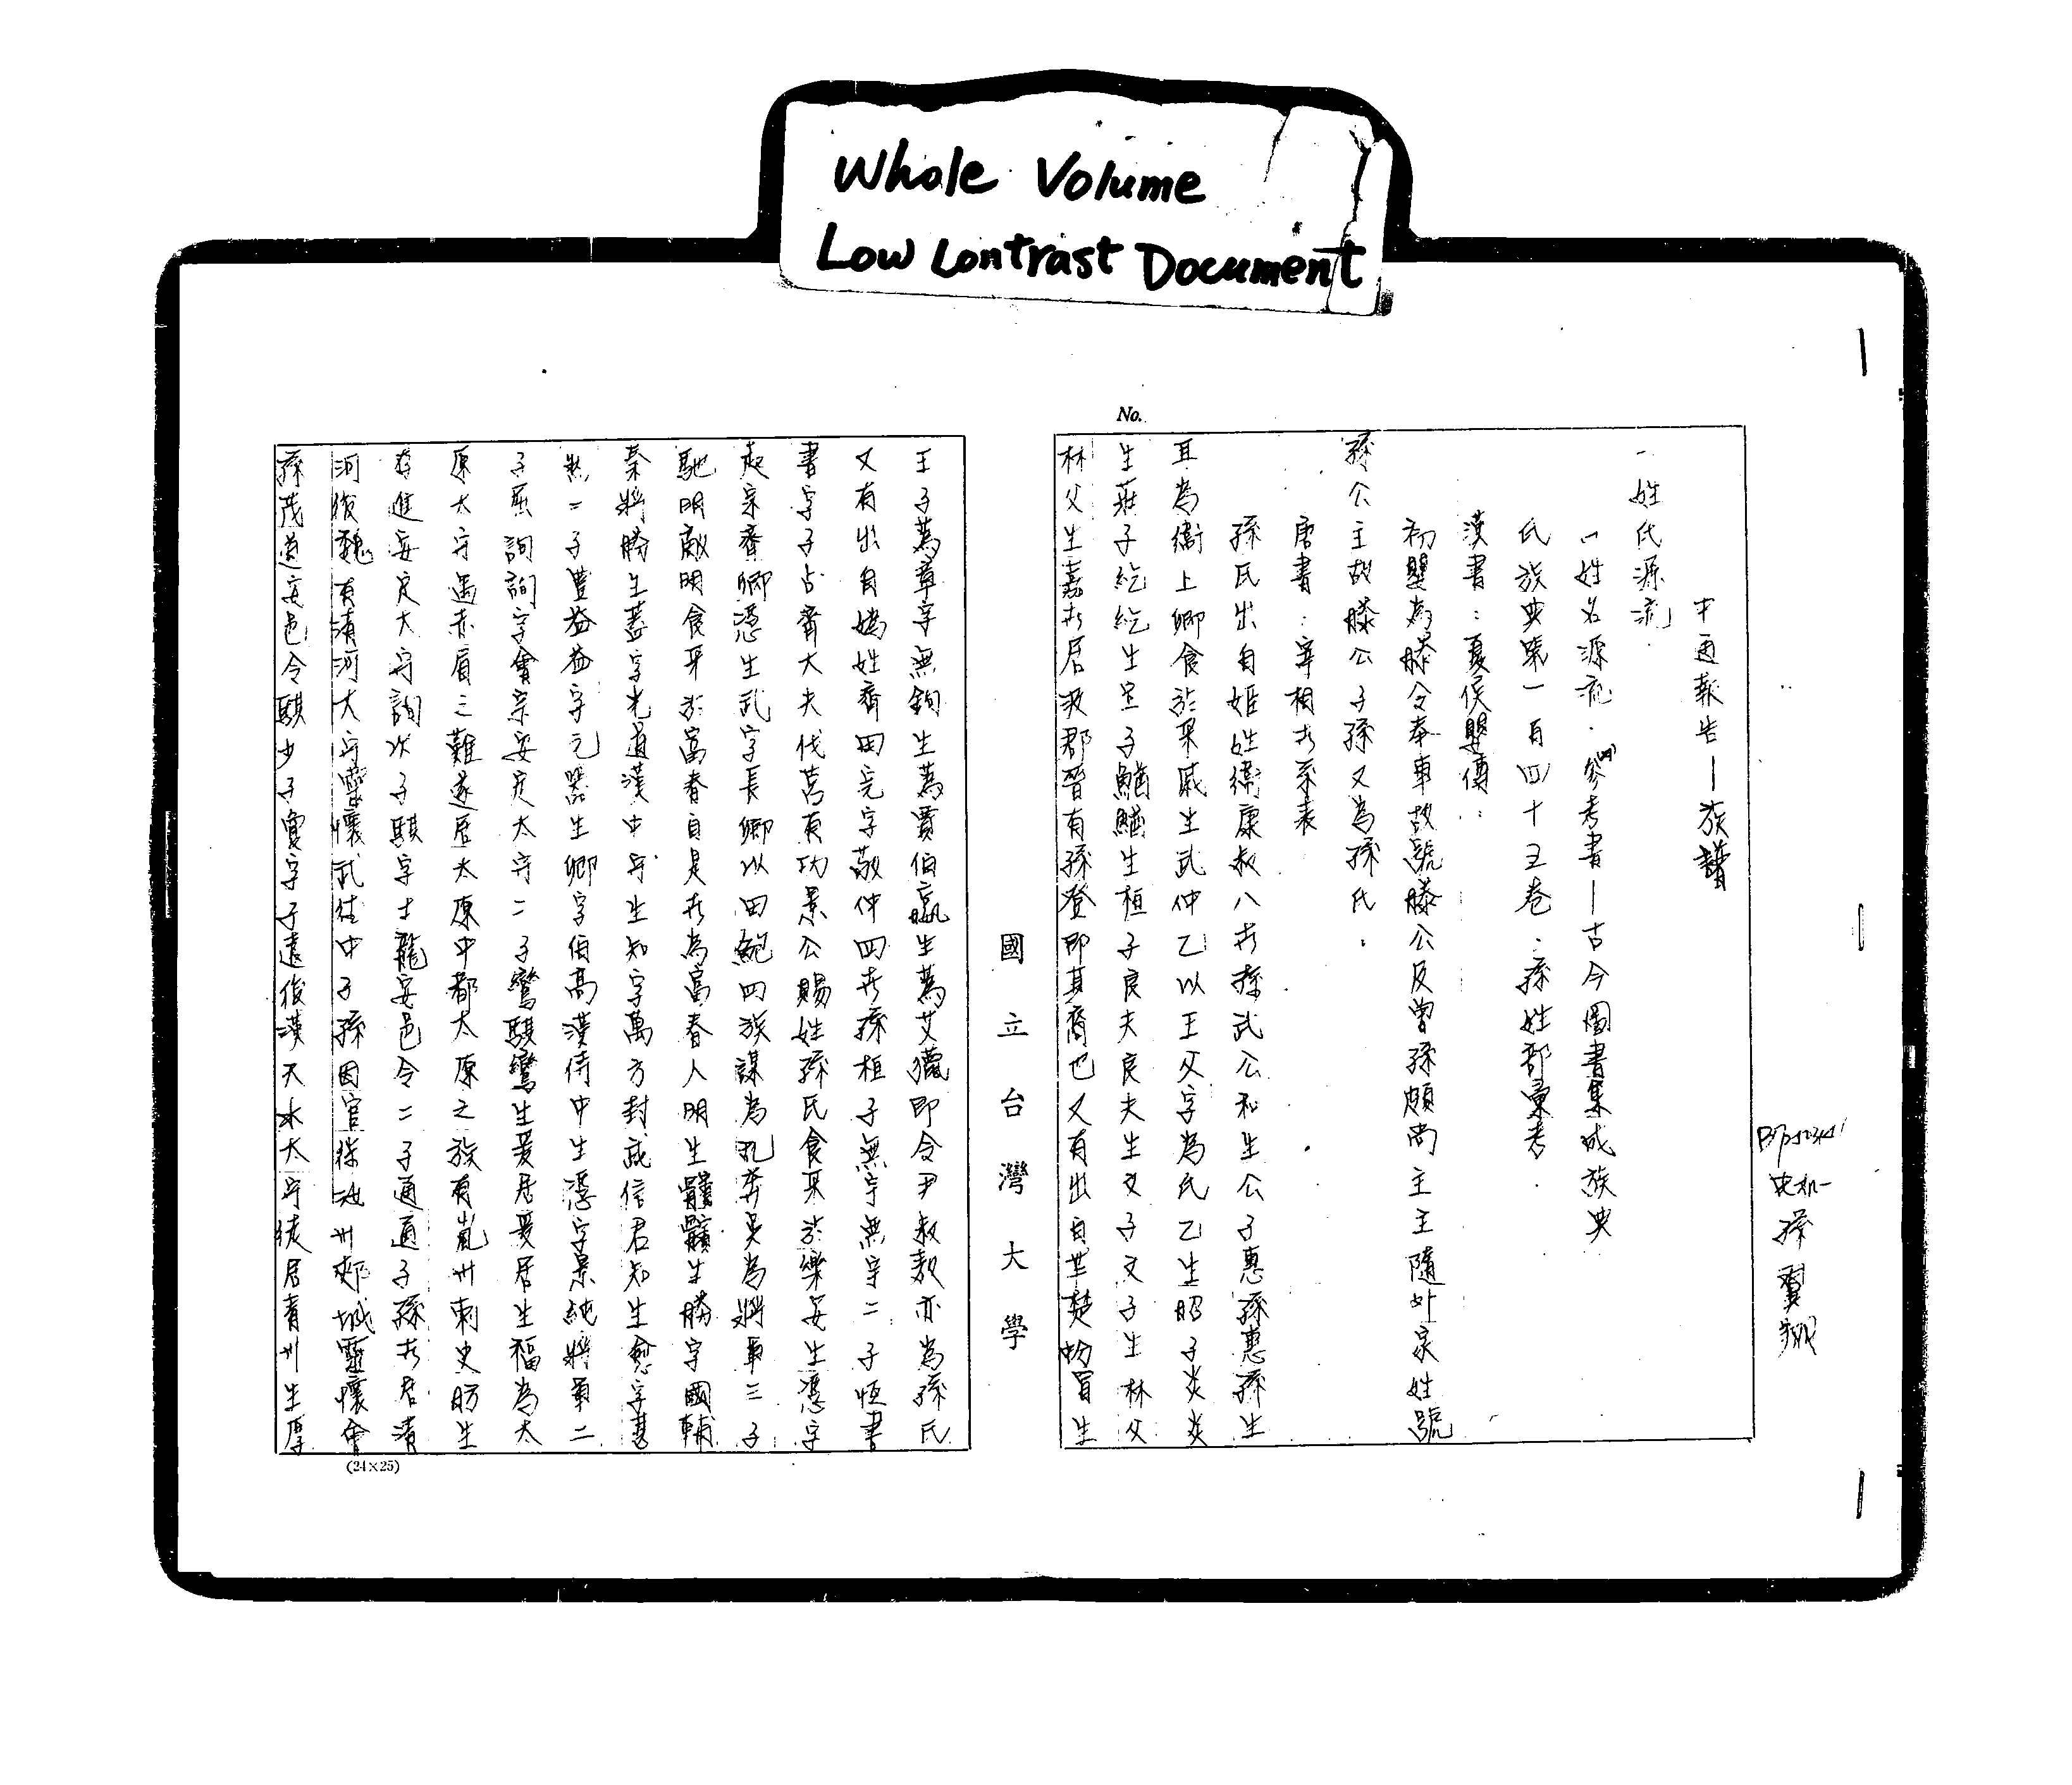 Whole Volume
Low Contrast Document
No.
中通報告—族譜
一姓氏源流
(一姓名源流．(四)參考書—古今圖書集成族典
氏族典第一百四十五卷：孫姓部彙考
漢書：夏侯嬰傳：
初嬰為滕令奉車故號滕公及曾孫頗尚主主隨外家姓號
孫公主故滕公子孫又為孫氏．
唐書：宰相世系表
孫氏出自姬姓衛康叔八世孫武公和生公子惠孫惠孫生
耳為衛上卿食於采戚生武仲乙以王父字為氏乙生昭子炎炎
生莊子紇紇生宣子鰌鰌生桓子良夫良夫生文子文子生林父
林父生嘉世居汲郡晉有孫登即其裔也又有出自羋楚蚡冒生
王子蒍章字無鉤生蒍賈伯嬴生蒍艾獵即令尹叔敖亦為孫氏
又有出自媯姓齊田完字敬仲四世孫桓子無宇無宇二子恆書
書字子占齊大夫伐莒有功景公賜姓孫氏食采於樂安生憑字
起宗齊卿憑生武字長卿以田鮑四族謀為亂奔吳為將軍三子
馳明敵明食采於富春自是世為富春人明生髕髕生勝字國輔
秦將勝生蓋字光道漢中守生知字萬方封武信君知生念字甚
然二子豐益益字元器生卿字伯高漢侍中生憑字景純將軍二
子厲詢詢字會宗安定太守二子鸞騏鸞生爰居爰居生福為太
原太守遇赤眉之難遂居太原中都太原之族有嵐州刺史昉生
存進安定太守詢次子騏字士龍安邑令二子通通子孫世居清
河後魏有清河太守靈懷武德中子孫因官徙汝州郟城靈懷會
孫茂道安邑令騏少子夐字子遠後漢天水太守徒居青州生厚
(24×25)
國立台灣大學
史研一
孫